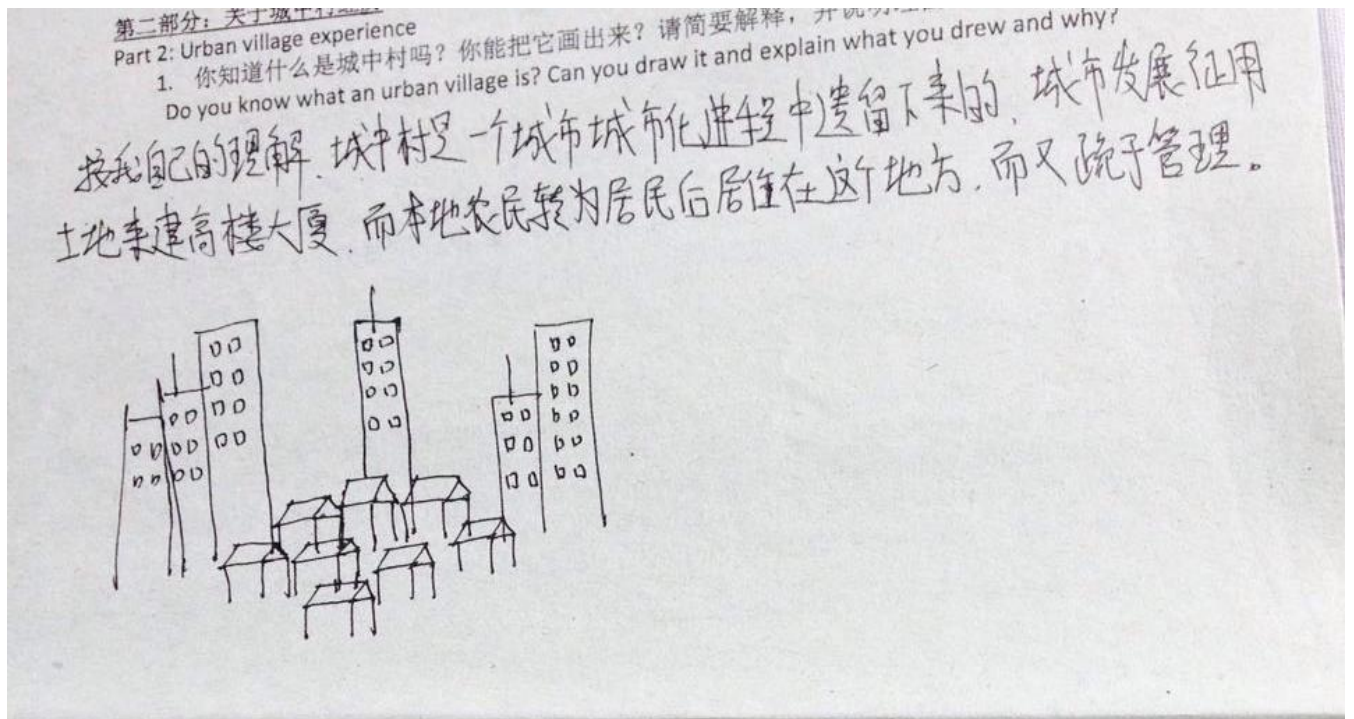 第二部分：关于城中村
Part 2: Urban village experience
1. 你知道什么是城中村吗？你能把它画出来？请简要解释，并说明
Do you know what an urban village is? Can you draw it and explain what you drew and why?
按我自己的理解、城中村是一个城市城市化进程中遗留下来的、城市发展征用
土地来建高楼大厦、而本地农民转为居民后居住在这个地方、而又疏于管理。